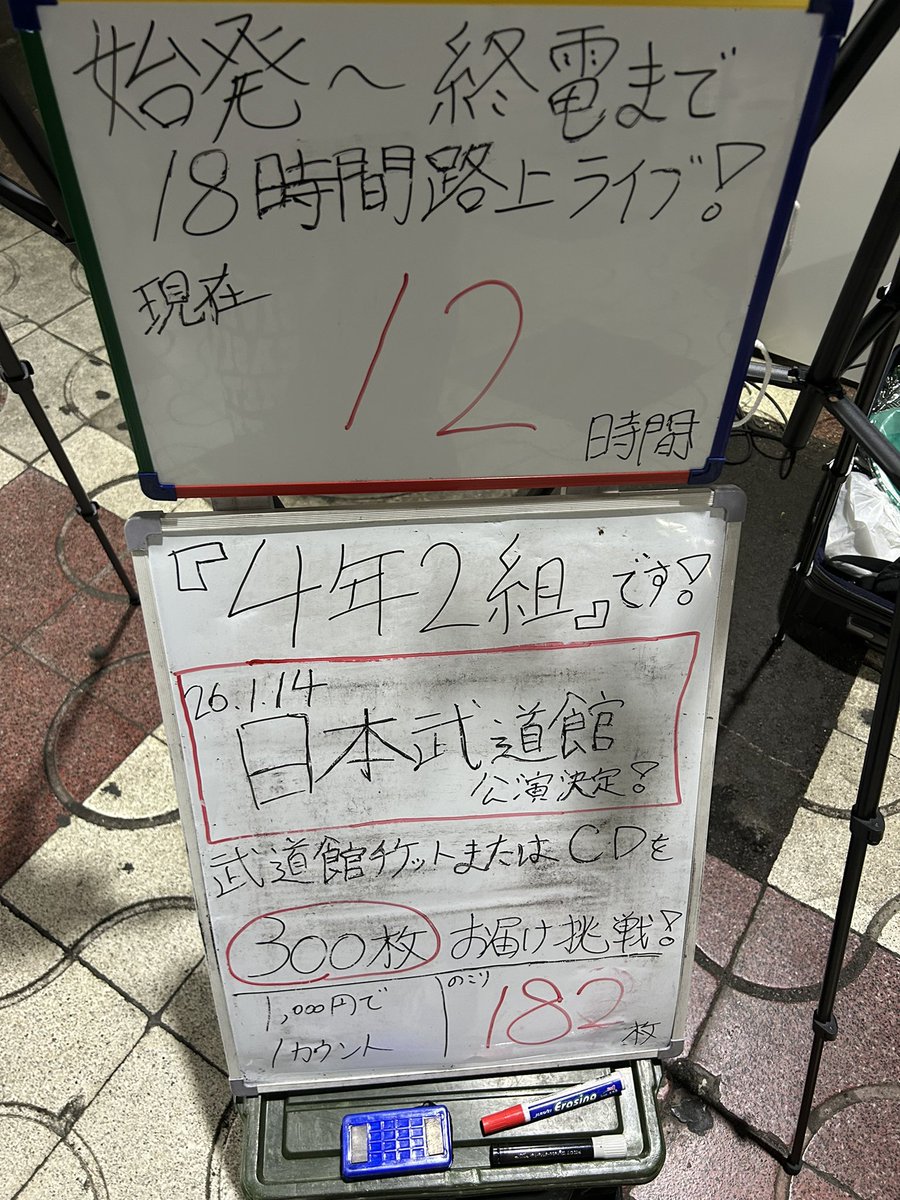 始発～終電まで
18時間路上ライブ!
現在
12
時間
『4年2組』です!
26.1.14
日本武道館
公演決定!
武道館チケットまたはCDを
300枚 お届け挑戦!
1,000円で
1カウント
のこり
182枚
Erasino